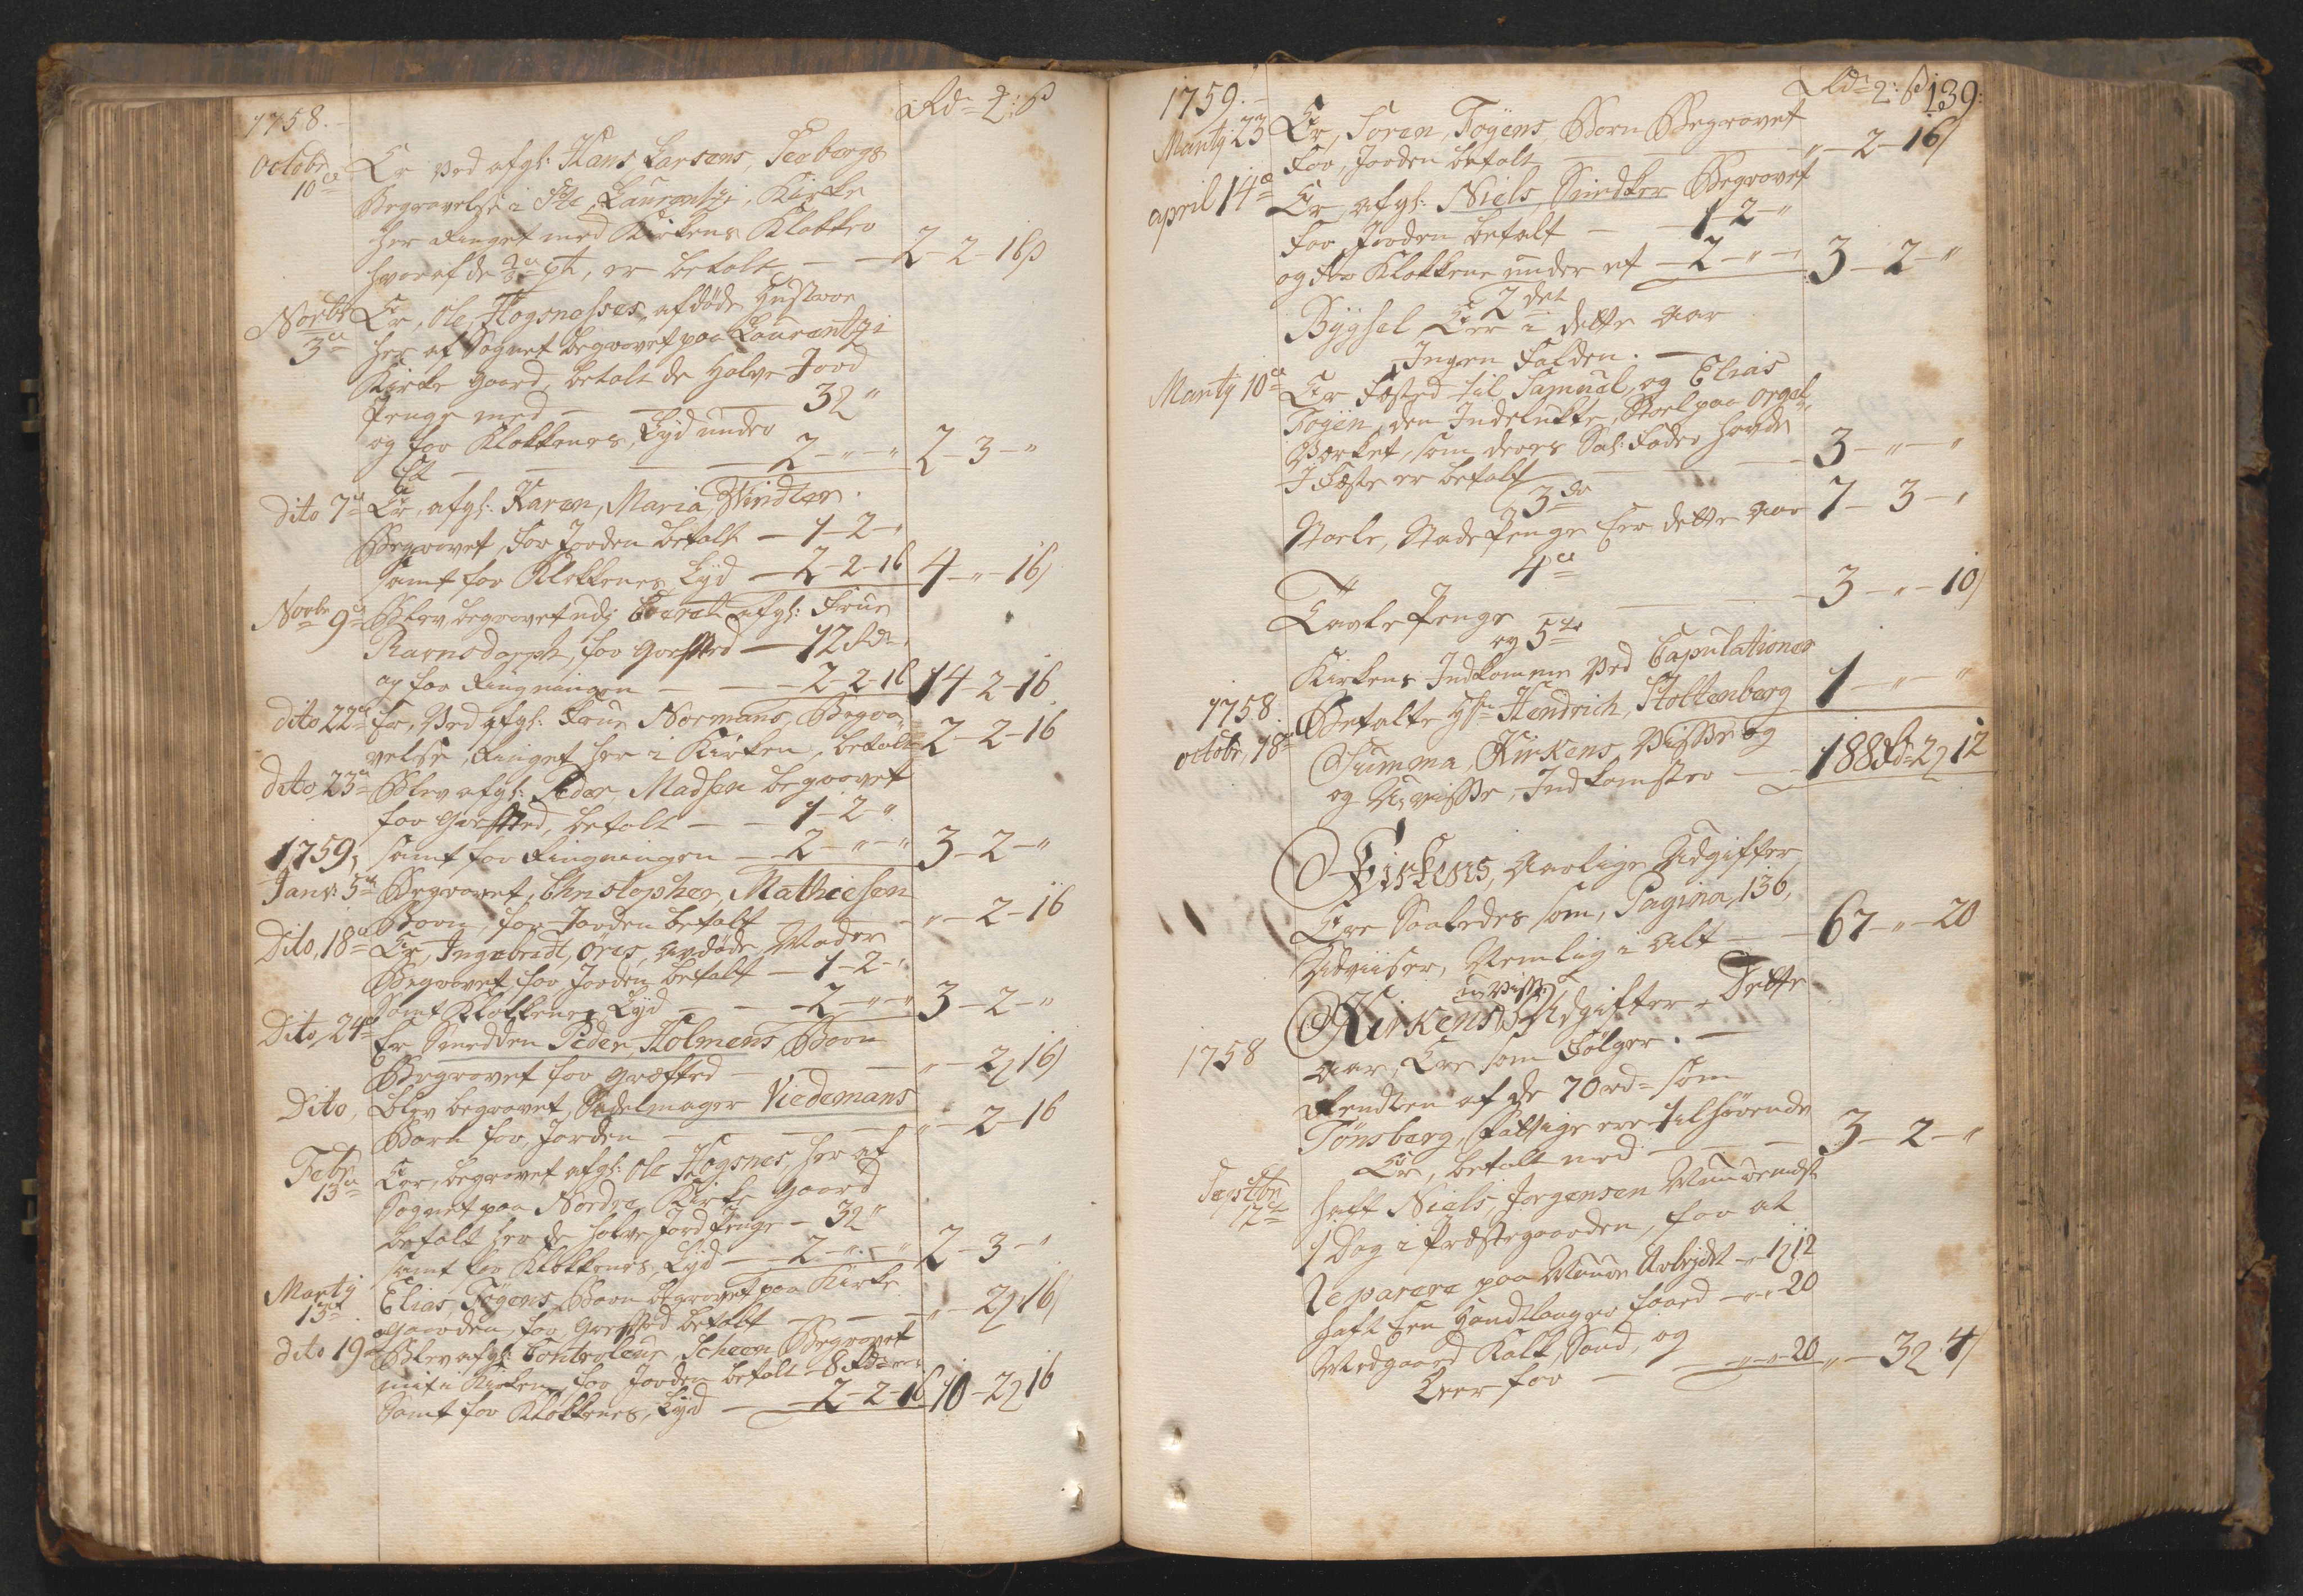 1758.
Rd= 2: ß
Octobr
10de
Er ved afgl: Hans Larsens, Seebergs
Begravelse i Ste, Laurentzi, Kirke
her Ringet med Kirkens Klokker
hvoraf de 2/3 pt, er betalt — 2-2-16ß
Novbr
3de
Er, Ole, Hogsnesses, afdøde Hustroe
her af Sognet begravet paa Laurentzi
Kirke gaard, betalt de halve Jord
Penge med — 3 2 "
og for Klokkenes, Lyd under
Et — 2-"-" 2-3-"
Dito 7de Er, afgl: Karen, Maria, Windler.
Begravet, for Jorden betalt — 1-2-"
samt for Klokkenes Lyd — 2-2-16 4-"-16
Novbr 9de Blev begravet udj Coeret afgl: Frue
Ravnsdorph, for Grafsted — 12 Rd
og for Ringningen — 2-2-16 14-2-16
Dito 22de Er, Ved afgl: Frue Normans, Begra-
velse, Ringet her i Kirken, betalt 2-2-16
Dito 23de Blev afgl: Peder, Madsen begravet
for Grafsted, betalt — 1-2-"
1759, samt for Ringningen — 2-"-" 3-2-"
Janv: 5te Begravet, Christopher, Mathiesen
Barn, for Jorden betalt — "-2-16
Dito, 18de Er, Ingebredt, Ores, avdøde Moder
Begravet, for Jorden betalt — 1-2-"
samt Klokkenes Lyd — 2-"-" 3-2-"
Dito, 24de Er Smedden Peder, Holmens, Barn
Begravet for Grafsted — "-2-16
Dito, blev begravet, Sadelmager Viedemans
Barn for, Jorden — "-2-16
Febr
13de
Er, begravet afgl: Ole Hogsnes, her af
Sognet paa Nordre Kirke gaard
betalt her de halve Jord Penge — 3 2 "
samt for Klokkenes, Lyd — 2-"-" 2-3-"
Martÿ
13de
Elias, Føyens Barn begravet paa Kirke
gaarden, for Grafsted betalt — "-2-16
Dito 19de Blev afgl: Controleur, Scheen Begravet
mit i Kirken for Jorden betalt — 8 Rd-"-"
samt for Klokkenes, Lyd — 2-2-16 10-2-16
1759.
Rd= 2: ß 139:
Martÿ: 23 Er, Soren, Foÿens, Barn Begravet
for, Jorden betalt — "-2-16
april 14de Er, afgl: Niels, Snedker Begravet
for Jorden betalt — 1-2-"
og for Klokkene under et — 2-"-" 3-2-"
2det
Bÿgsel Er i dette Aar
Ingen Falden. —
Martÿ 10de Er Fæsted til Samuel, og Elias
Foÿen, den Indelukte, Stoel paa orgel
Værket, som deres Sal: Fader hafde
I Fæste er betalt — 3-"-"
3de
Stoele, Stade Penge Er dette Aar 7-3-"
4de
Tavle Penge — 3-"-10
og 5te
Kirkens Indkomme ved Copulationer
1758.
octobr, 18de Betalte Hr Hendrich, Stoltenberg 1-"-"
Summa, Kirkens, Visse og
og Uvisse, Indkomster — 188 Rd= 2 12
Kirkens, Aarlige Udgifter,
Ere Saaledes som, Pagina, 136,
Udviiser, Nemlig i Alt — 67-"-20
Kirkens, uvisse Udgifter Dette
1758
Aar, Ere som Følger. —
Rendten af de 70 rd= som
Tønsberg, Fattige ere tilhørende
Er, betalt med — 3-2-"
Septbr
12te
haft Niels, Jorgensen Muurmest
1 Dag i Præstegaarden, for at
Reparere paa Muur Arbejdet -"-1 12
haft Een Handtlanger foord -"-"-20
Medgaaed Kalk, Sand, og
Leer for — "-"-20 "-3 2 4